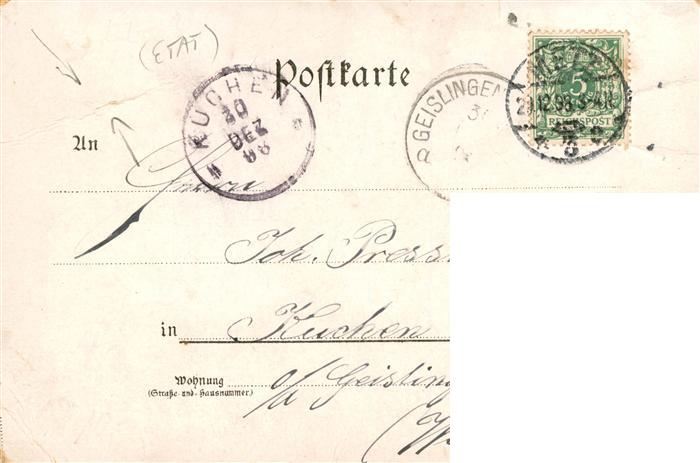 (ETAT)
Postkarte
KUCHEN
30
DEZ
98
GEISLINGEN
METZ
29.12.98.3-4N.
5
REICHSPOST
An
Herrn
Joh. Press
in Kuchen
Wohnung
(Straße und Hausnummer)
a/ Geisling
(W